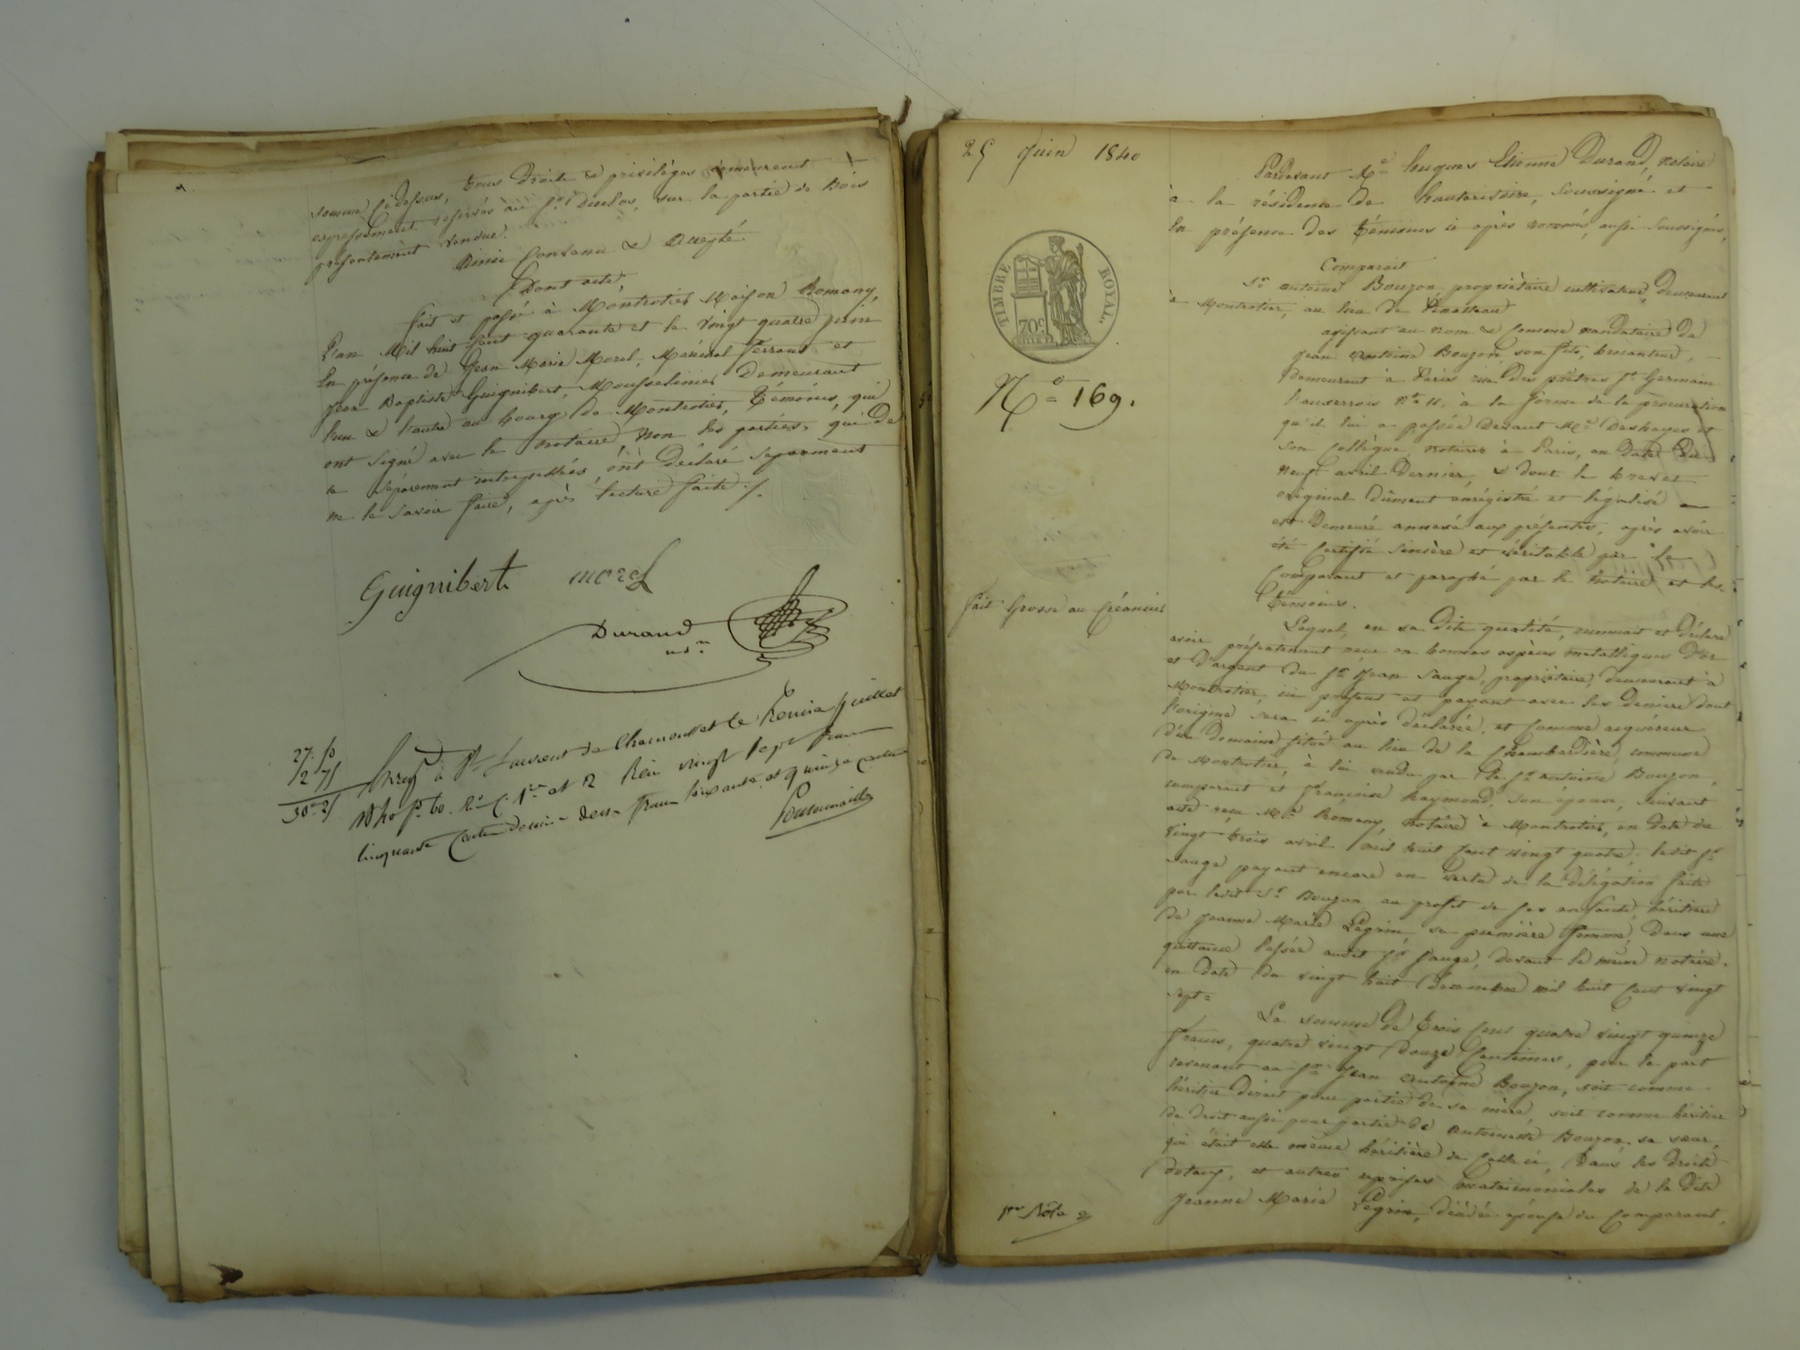 somme ci dessus, tous droits et privilèges demeurent
expressément réservés au Sr Duclos, sur la partie de Bois
présentement vendue.
Ainsi Convenu & Accepté
Dont acte,
fait et passé à Montrotier Maison Romany,
L'an Mil huit cent quarante et le vingt quatre juin
En présence de Jean Marie Morel, Maréchal ferrant et
Jean Baptiste Guignibert, Mousselinier Demeurant
l'un & l'autre au bourg de Montrotier, témoins, qui
ont signé avec le notaire, non les parties, qui de
ce séparement interpellées, ont déclaré séparement
ne le savoir faire, après lecture faite ./.
Guignibert morel
Durand
nre
27. 50
2 75
30 25
Enregé à St Laurent de Chamousset le juillet
1840 fo 60. Ro C. 1ere et 2 Reçu vingt sept francs
cinquante centimes deux francs soixante et quinze centimes
25 Juin 1840
TIMBRE ROYAL
70 c
No = 169.
fait Grosse au Créancier
Pardevant Me hugues Etienne Durand, notaire
à la résidence de hauterivoire, soussigné et
En présence des témoins ci après nommés, aussi soussignés,
Comparait
Sr antoine Boujon, propriétaire cultivateur, demeurant
à Montrotier, au lieu de
agissant au nom & comme mandataire de
Jean antoine Boujon, son fils, brocanteur,
Demeurant à Paris rue des prêtres St Germain
l'auxerrois No 11, à la forme de la procuration
qu'il lui a passée Devant Me Deshayes et
son Collègue, notaires à Paris, en date du
neuf avril Dernier, & dont le brevet
original Dûment enrégistré et légalisé
est Demeuré annexé aux présentes, après avoir
été Certifié sincère et véritable par le
Comparant et paraphé par le Notaire et les
témoins.
Lequel, en sa dite qualité, reconnait et déclare
avoir présentement reçu en bonnes espèces métalliques d'or
et d'argent du Sr Jean Sauge, propriétaire, demeurant à
Montrotier, ici présent et payant avec les deniers dont
l'origine sera ci après déclarée, et comme acquéreur
d'un domaine situé au lieu de la Chambardière, commune
De Montrotier, à lui vendu par le Sr antoine Boujon,
comparant et françoise Raymond, son épouse, suivant
acte reçu Me Romany, notaire à Montrotier, en date du
vingt trois avril mil huit cent vingt quatre; ledit Sr
Sauge payant encore en vertu de la délégation faite
par ledit Sr Boujon, au profit de ses enfants, héritiers
De Jeanne Marie Légrin sa première femme, Dans une
quittance passée audit Sr Sauge, devant le même notaire,
en date du vingt huit Décembre mil huit cent vingt
sept =
La somme de trois cent quatre vingt quinze
francs, quatre vingt douze centimes, pour la part
revenant au Sr Jean antoine Boujon, soit comme
héritier direct pour partie de sa mère, soit comme héritier
de droit aussi pour partie de antoinette Boujon, sa sœur,
qui était elle même héritière de celle ci, Dans les droits
dotaux, et autres reprises matrimoniales de la dite
Jeanne Marie Légrin, décédée épouse du Comparant,
1er Rôle